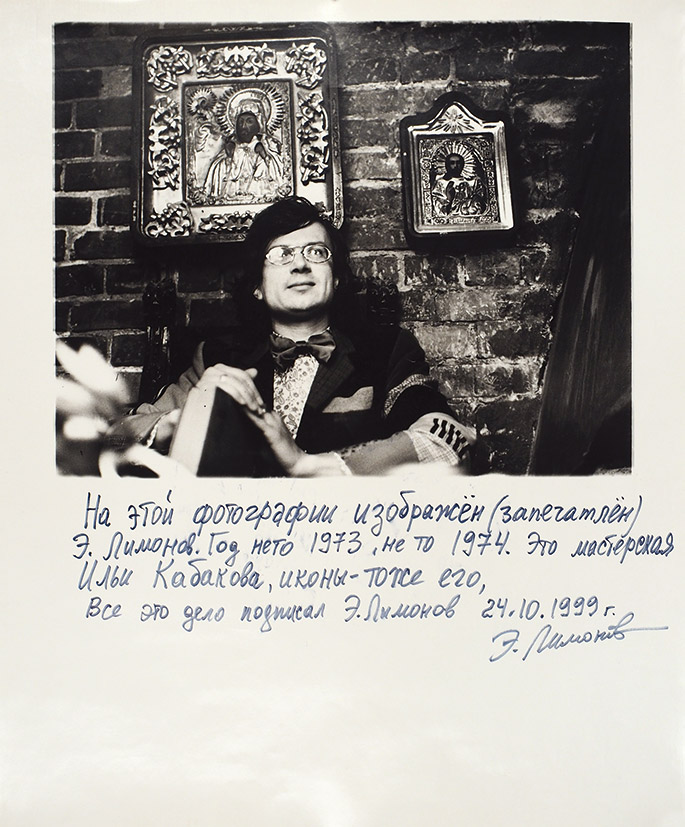 На этой фотографии изображён (запечатлён)
Э. Лимонов. Год не то 1973, не то 1974. Это мастерская
Ильи Кабакова, иконы - тоже его,
Все это дело подписал Э.Лимонов 24.10.1999 г.
Э. Лимонов